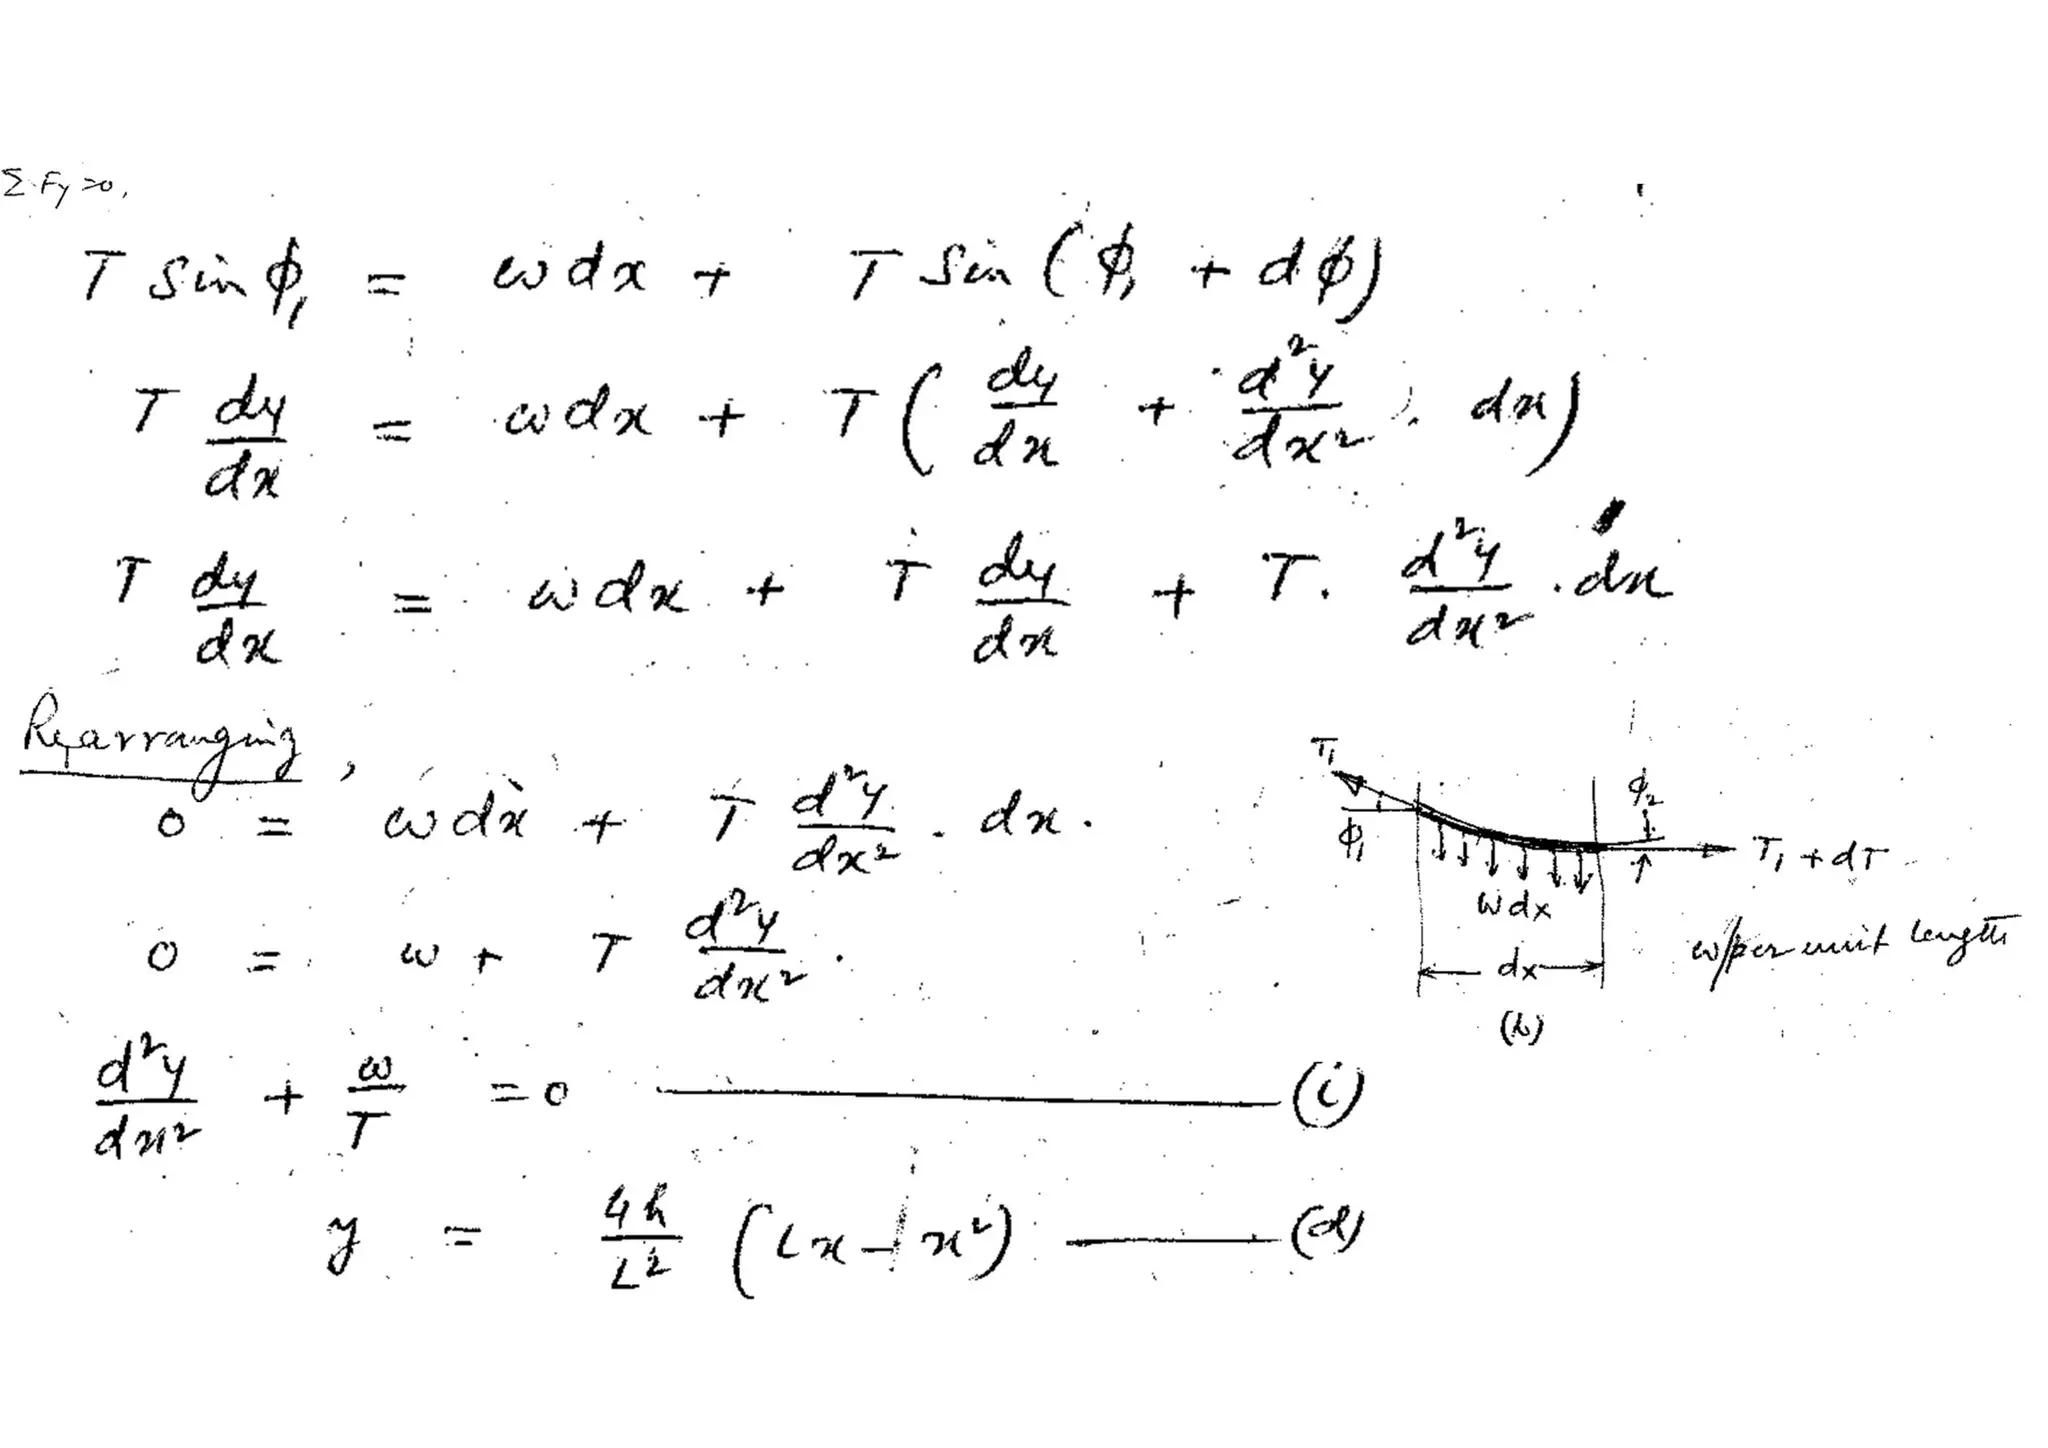 Σ Fy = 0,
T Sin ϕ₁ = ω dx + T Sin (ϕ₁ + dϕ)
T dy/dx = ω dx + T ( dy/dx + d²y/dx² . dx )
T dy/dx = ω dx + T dy/dx + T. d²y/dx² . dx
Rearranging,
0 = ω dx + T d²y/dx² . dx.
0 = ω + T d²y/dx² .
d²y/dx² + ω/T = 0 ——— (i)
y = 4h/L² (Lx - x²) ——— (d)
T₁
ϕ₁
ϕ₂
T₁ + dT
W dx
w/per unit length
dx
(b)